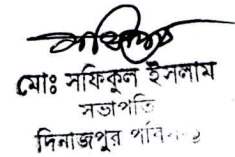 মোঃ সফিকুল ইসলাম
সভাপতি
দিনাজপুর